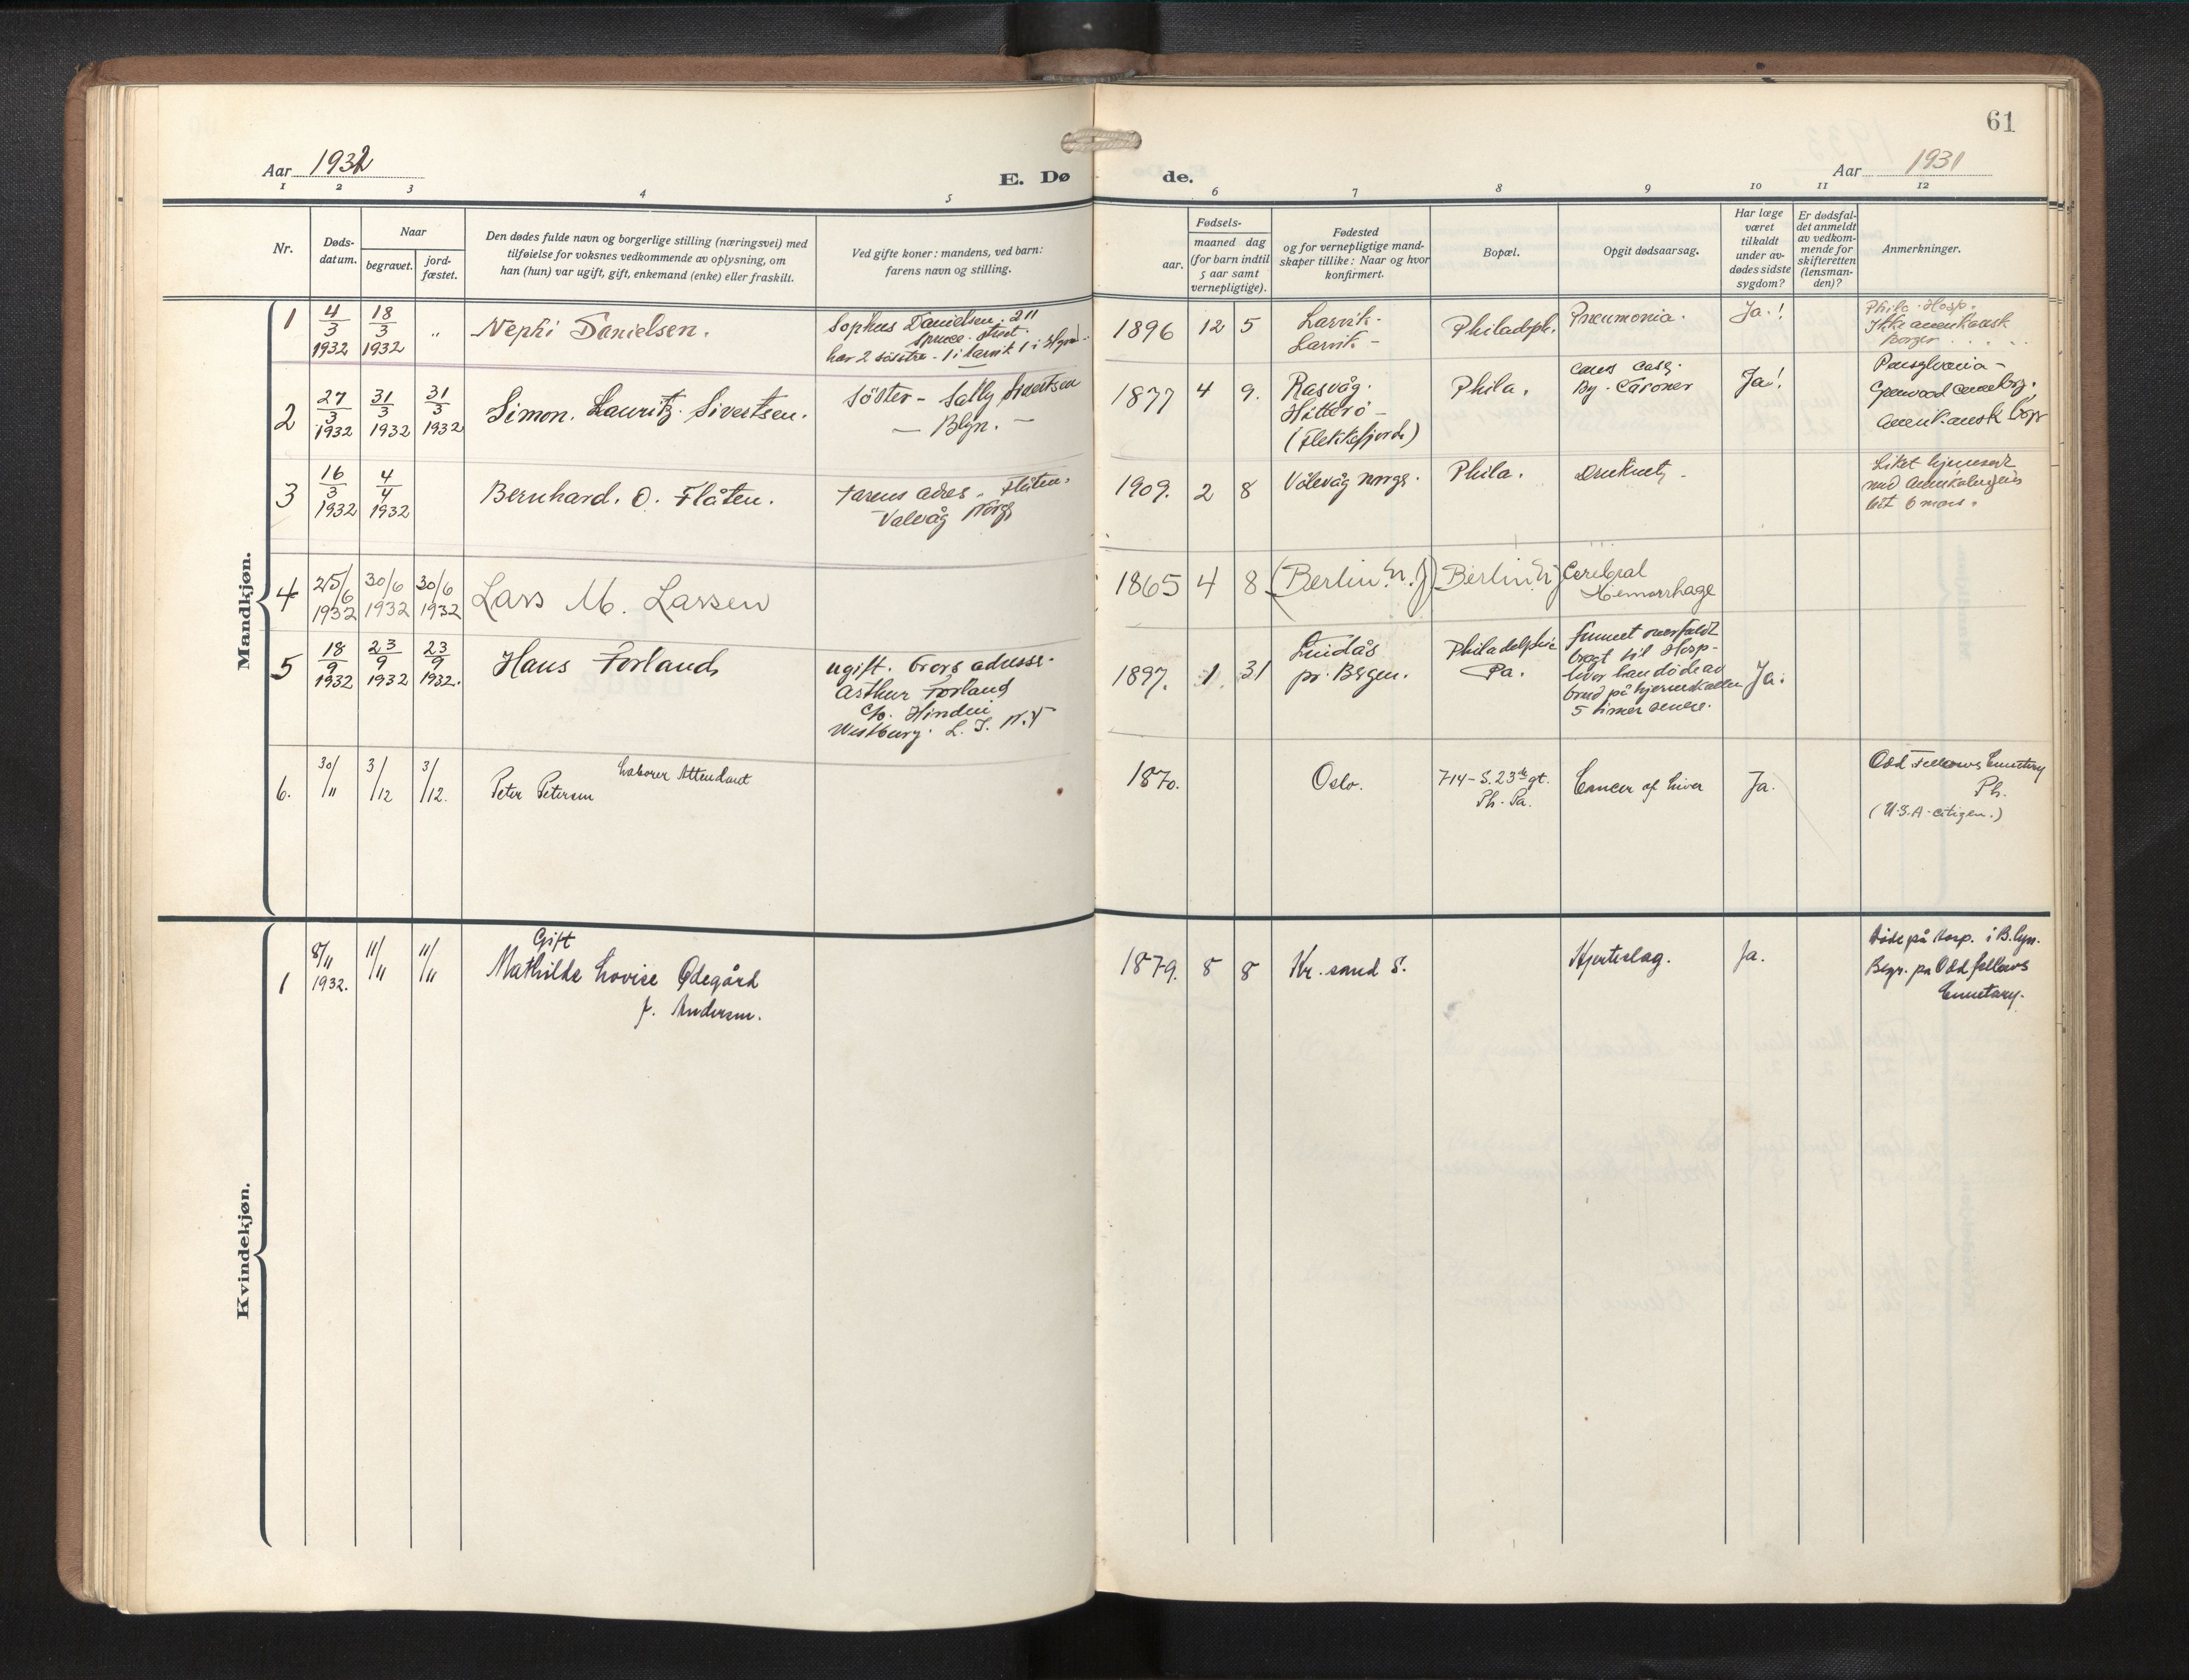 61
Aar 1932
E. Dø de.
Aar 1931
1 2 3 4 5 6 7 8 9 10 11 12
Nr.
Døds-
datum.
Naar
begravet.
jord-
fæstet.
Den dødes fulde navn og borgerlige stilling (næringsvei) med
tilføielse for voksnes vedkommende av oplysning, om
han (hun) var ugift, gift, enkemand (enke) eller fraskilt.
Ved gifte koner: mandens, ved barn:
farens navn og stilling.
Fødsels-
aar.
maaned dag
(for barn indtil
5 aar samt
vernepligtige).
Fødested
og for vernepligtige mand-
skaper tillike: Naar og hvor
konfirmert.
Bopæl.
Opgit dødsaarsag.
Har læge
været
tilkaldt
under av-
dødes sidste
sygdom?
Er dødsfal-
det anmeldt
av vedkom-
mende for
skifteretten
(lensman-
den)?
Anmerkninger.
Mandkjøn.
1
4/3 1932
18/3 1932
"
Nephi Danielsen.
Sophus Danielsen. 211
Spruce. street.
har 2 søstre - 1 i Larvik 1 i
1896 12 5
Larvik.
Larvik -
Philadph.
Pneumonia.
Ja.!
Phila. Hosp.
Ikke amerikansk
Borger . . . .
2
27/3 1932
31/3 1932
31/3 1932
Simon. Lauritz. Sivertsen.
Söster - Sally Sivertsen
— Blyn. —
1877 4 9.
Rasvåg.
Hitterö -
(Flekkefjord)
Phila.
By. Coroner
Ja!
Pensylvania -
Amerikansk Borger
3
16/3 1932
4/4 1932
Bernhard. O. Flåten.
Farens adres. Flåten.
Valvåg Norge
1909. 2 8
Vålevåg Norge.
Phila.
Druknet -
Liket hjemsendt
med
6 mars.
4
25/6 1932
30/6 1932
30/6 1932
Lars M. Larsen
1865 4 8
(Berlin N. J)
Berlin N J
Cerebral
Hemorrhage
5
18/9 1932
23/9 1932
23/9 1932.
Hans Forland
ugift. Brors adresse.
Arthur Forland
c/o. Hindin
Westbury. L. I. N.Y
1897. 1. 31
Lindås
pr. Bergen.
Philadelphia
Pa.
funnet overfaldt
bragt til Hosp-
hvor han döde av
brud på hjerneskallen
5 timer senere.
Ja.
6.
30/11
3/12
3/12.
Laborer Attendant
Peter Petersen
1870.
Oslo.
714 - S. 23de gt.
Ph. Pa.
Cancer of Liver
Ja.
Odd Fellows Cemetery
Ph.
(U.S.A - citizen.)
Kvindekjøn.
1
8/11 1932.
11/11
11/11
Gift
Mathilde Lovise Ødegård
f. Andersen.
1879. 8 8
Kr. sand S.
Hjerteslag.
Ja.
Døde på Hosp. i B.lyn.
Begr. på Odd fellows
Cemetary.